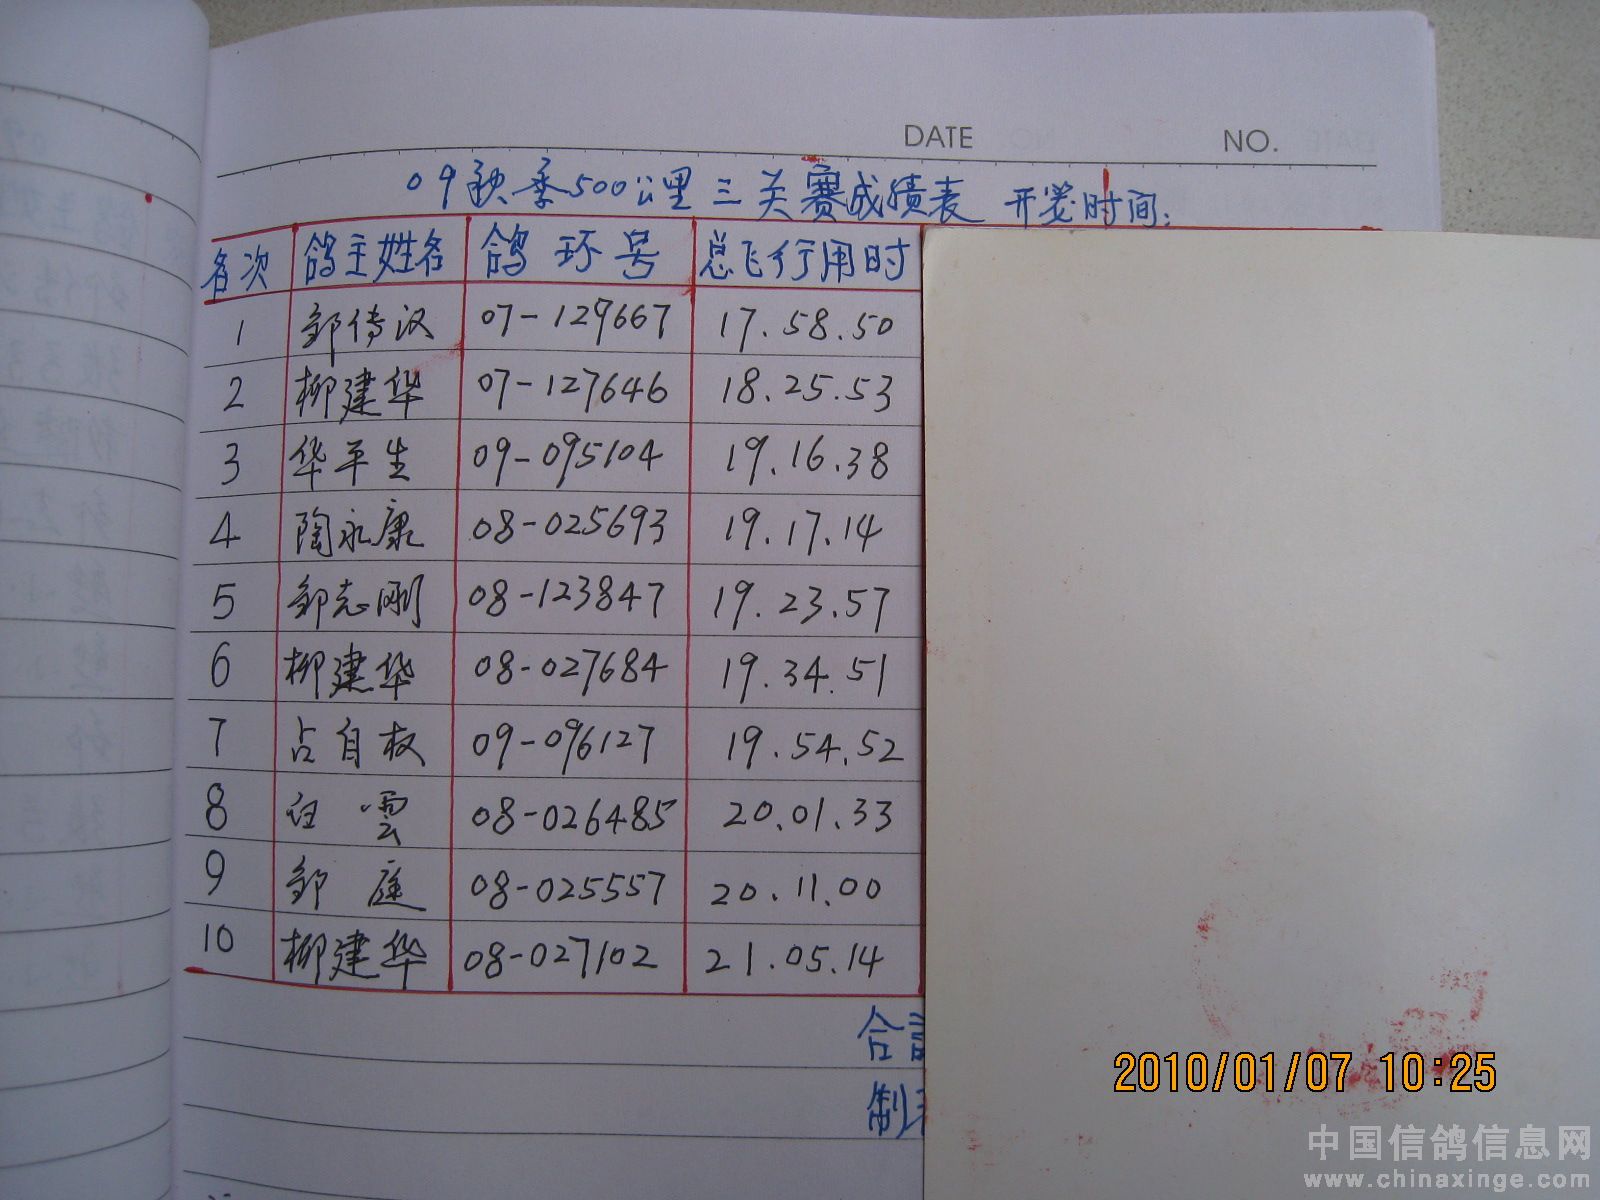 DATE NO.
09秋季500公里三关赛成绩表 开笼时间:
名次 鸽主姓名 鸽环号 总飞行用时
1 邹传汉 07-129667 17.58.50
2 柳建华 07-127646 18.25.53
3 华平生 09-095104 19.16.38
4 陶永康 08-025693 19.17.14
5 邹志刚 08-123847 19.23.57
6 柳建华 08-027684 19.34.51
7 占自权 09-096127 19.54.52
8 汪雲 08-026485 20.01.33
9 邹庭 08-025557 20.11.00
10 柳建华 08-027102 21.05.14
合
制
2010/01/07 10:25
中国信鸽信息网
www.chinaxinge.com